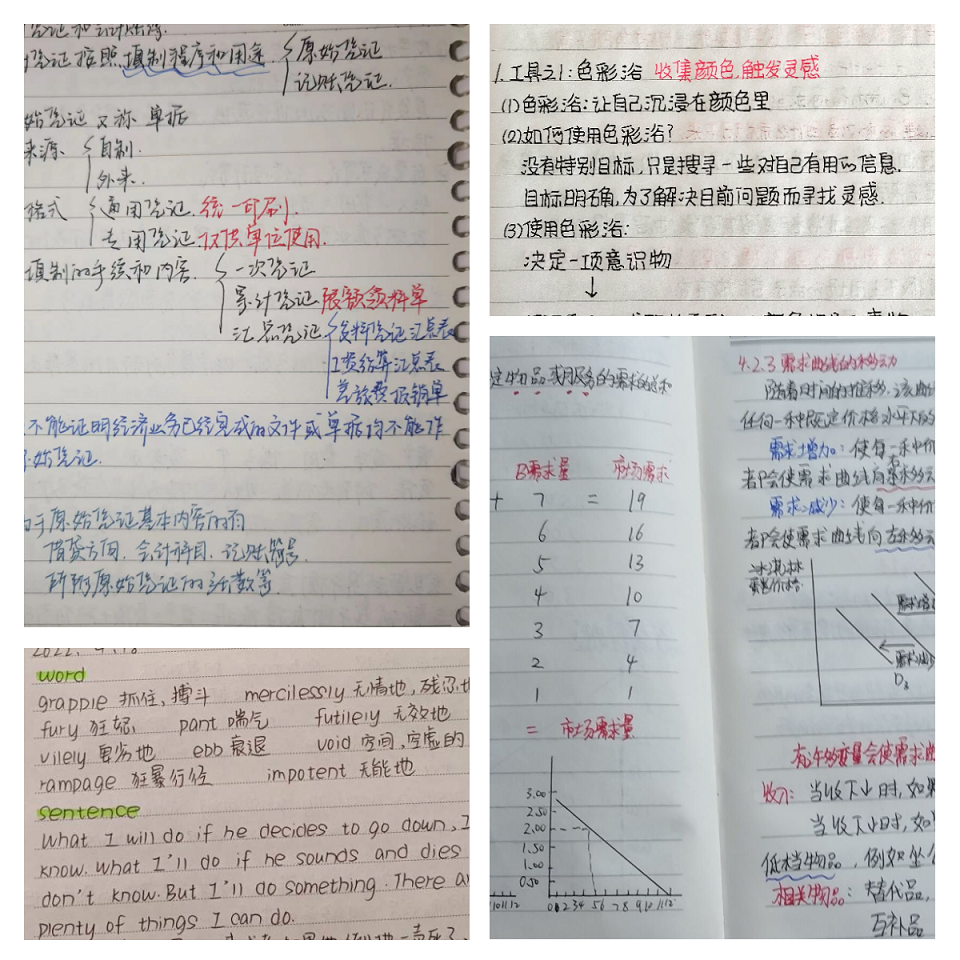 凭证按照填制程序和用途
原始凭证
记账凭证
始凭证又称单据
来源
自制.
外来.
格式
通用凭证.统一印刷.
专用凭证.仅供单位使用.
填制的手续和内容.
一次凭证
累计凭证 限额领料单
汇总凭证 发料凭证汇总表
工资结算汇总表
差旅费报销单
不能证明经济业务已经完成的文件或单据均不能作
始凭证.
于原始凭证基本内容的有
借贷方向、会计科目、记账符号
所附原始凭证的张数等.
1.工具之1:色彩浴 收集颜色,触发灵感
(1)色彩浴:让自己沉浸在颜色里
(2)如何使用色彩浴?
没有特别目标,只是搜寻一些对自己有用的信息.
目标明确,为了解决目前问题而寻找灵感.
(3)使用色彩浴:
决定一项意识物
↓
定物品或服务的需求的总和
B需求量 市场需求
+ 7 = 19
6 16
5 13
4 10
3 7
2 4
1 1
= 市场需求量
3.00
2.50
2.00
1.50
1.00
0.50
10 11 12 0 1 2 3 4 5 6 7 8 9 10 11 12
4.2.3 需求曲线的移动
随着时间的推移,该曲
任何一种既定价格水平下的
需求增加:使每一种价
者P会使需求曲线向
需求减少:使每一种价
者P会使需求曲线向左移动
冰淇淋
蛋卷价格
需求增
需求减少
D₃
有许多变量会使需求曲
收入:当收入↓时,如果
当收入↓时,如
低档物品,例如坐公
相关物品:替代品,
互补品
2022. 4.18
word
grapple 抓住,搏斗 mercilessly 无情地,残忍地
fury 狂怒 pant 喘气 futilely 无效地
vilely 卑劣地 ebb 衰退 void 空间,空虚的
rampage 狂暴行径 impotent 无能地
sentence
What I will do if he decides to go down, I
know. What I'll do if he sounds and dies
don't know. But I'll do something. There a
plenty of things I can do.